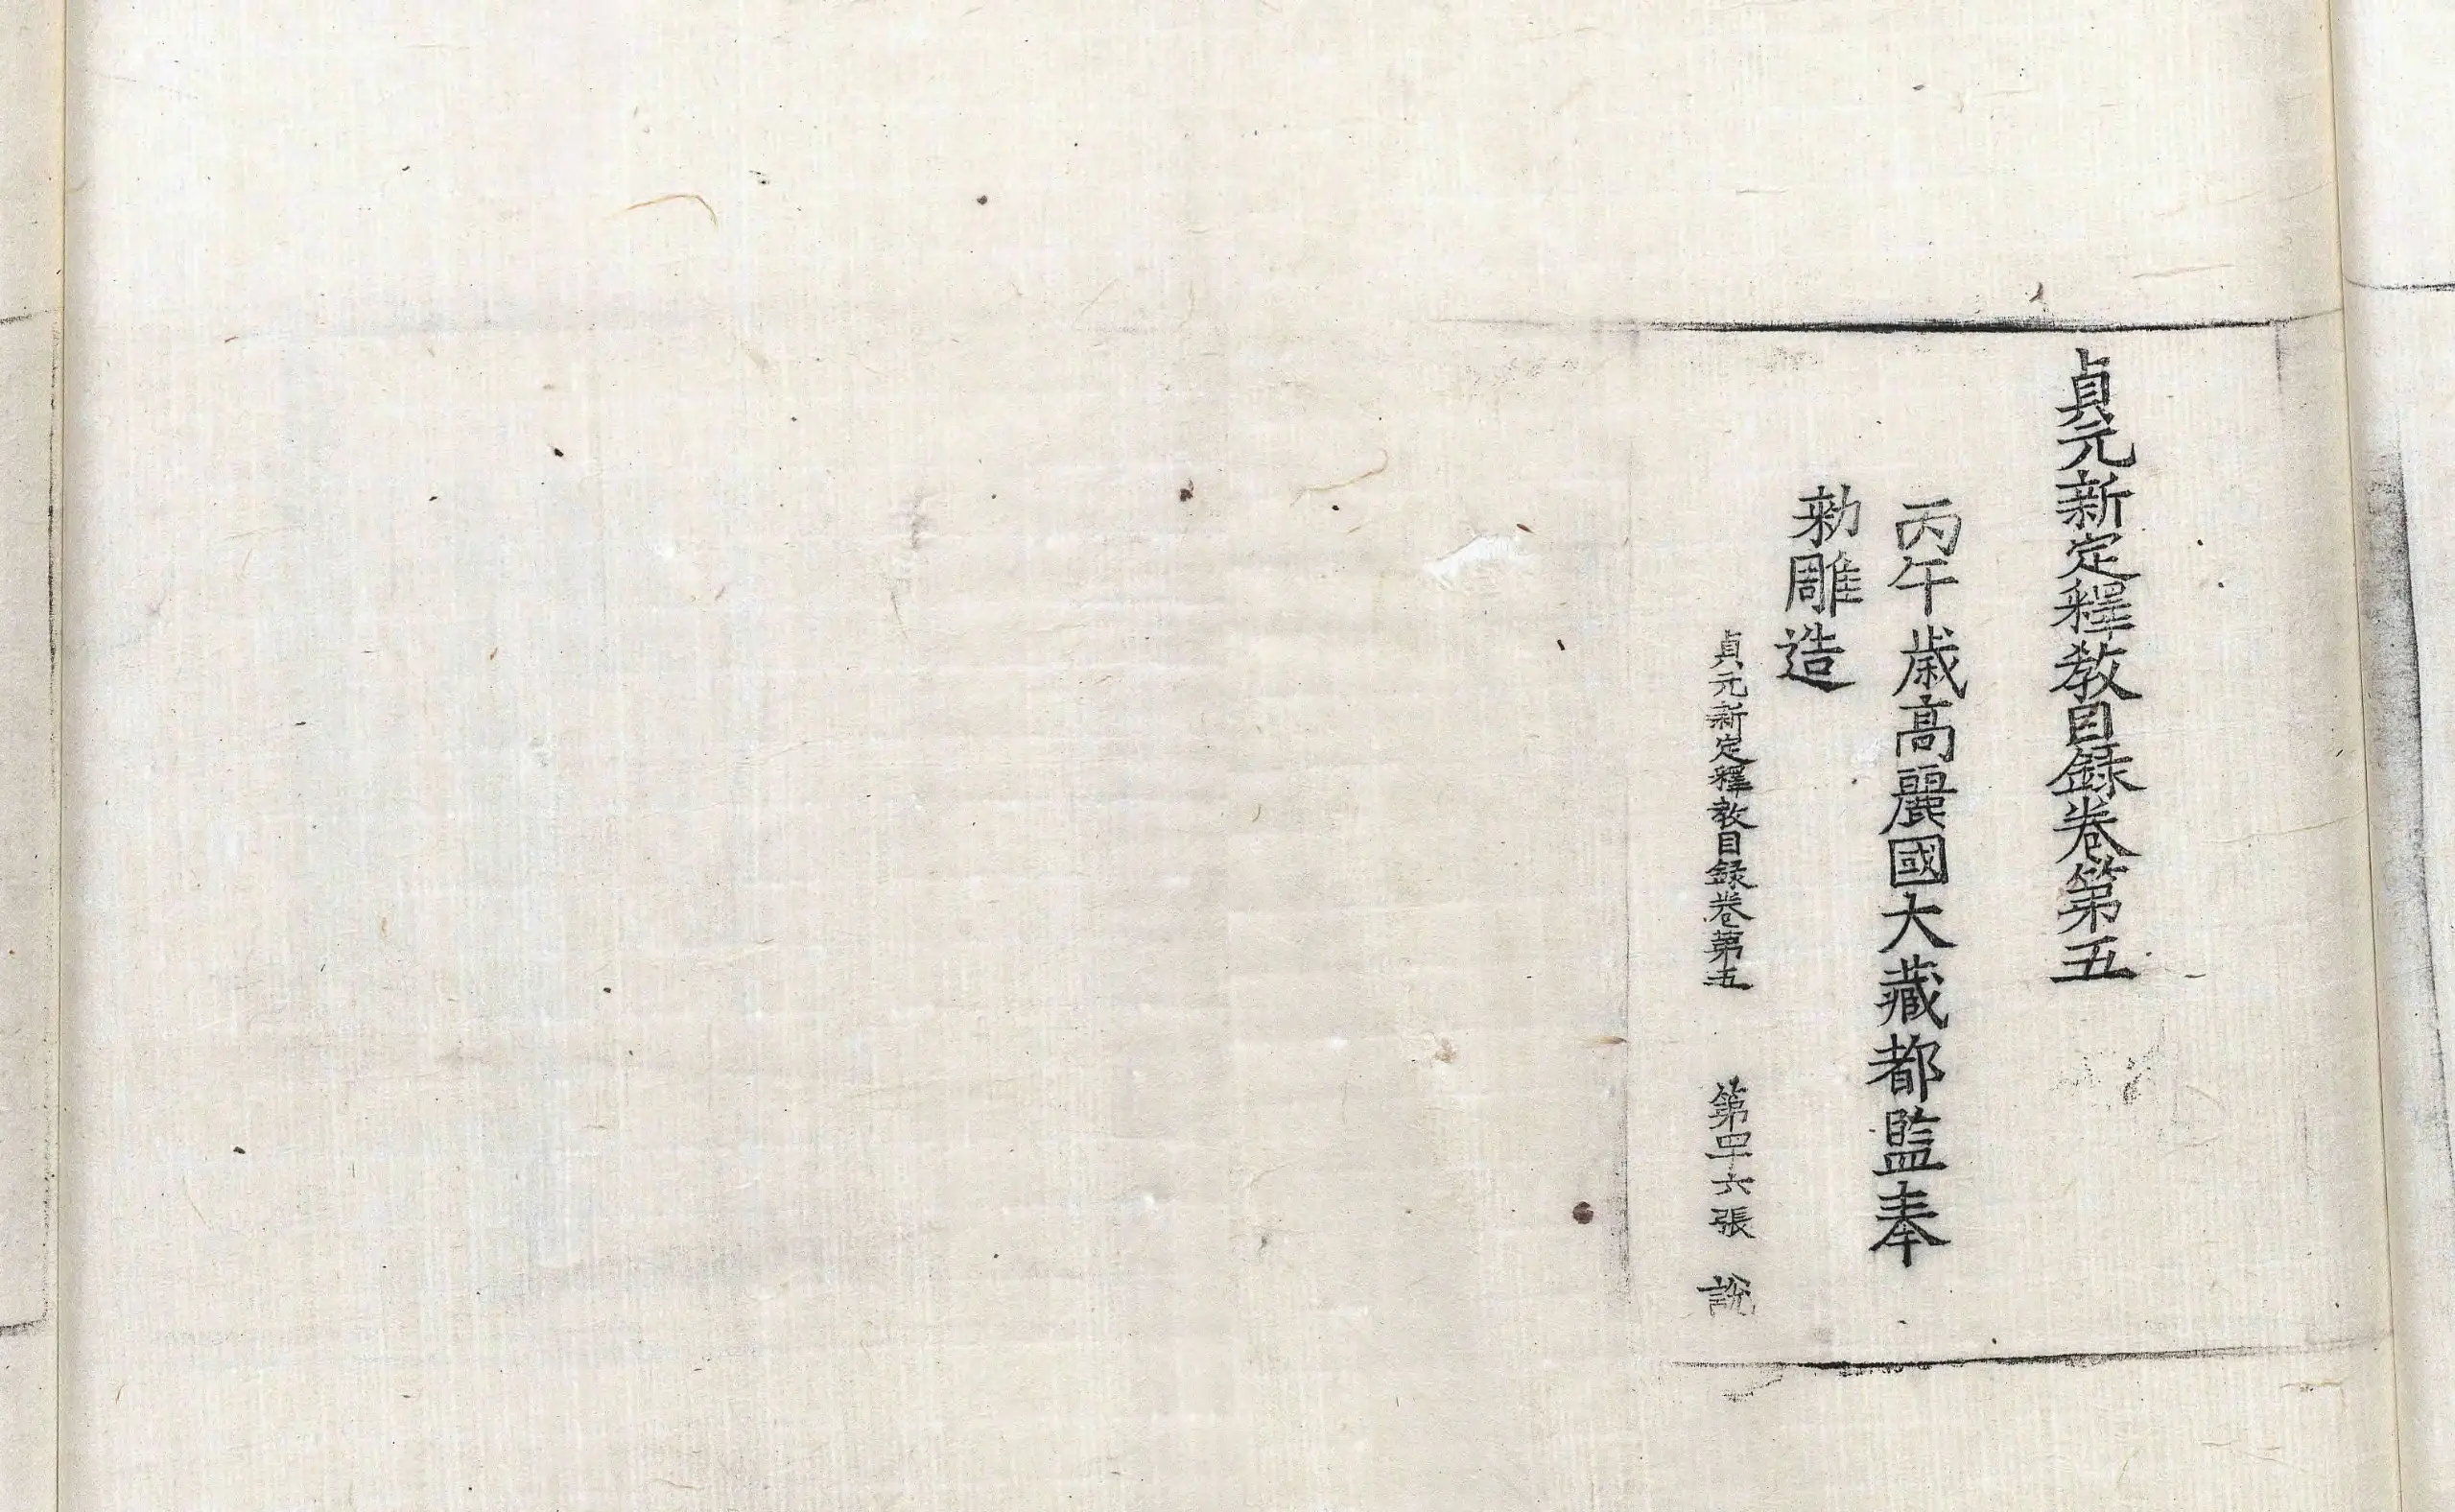 貞元新定釋教目録卷第五
丙午歳高麗國大藏都監奉
勑雕造
貞元新定釋教目録卷第五 第四十六張 說